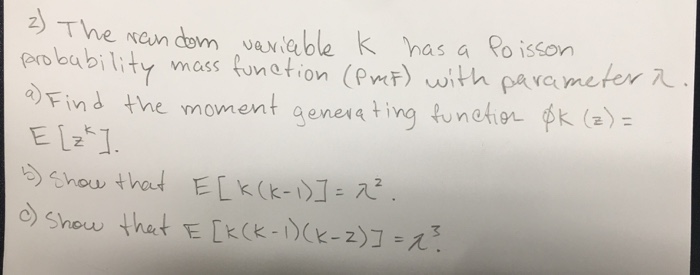 2) The random variable K has a Poisson
probability mass function (PMF) with parameter λ.
a) Find the moment generating function ϕK (z) =
E [z^k].
b) Show that E[K(K-1)] = λ².
c) Show that E [K(K-1)(K-2)] = λ³.